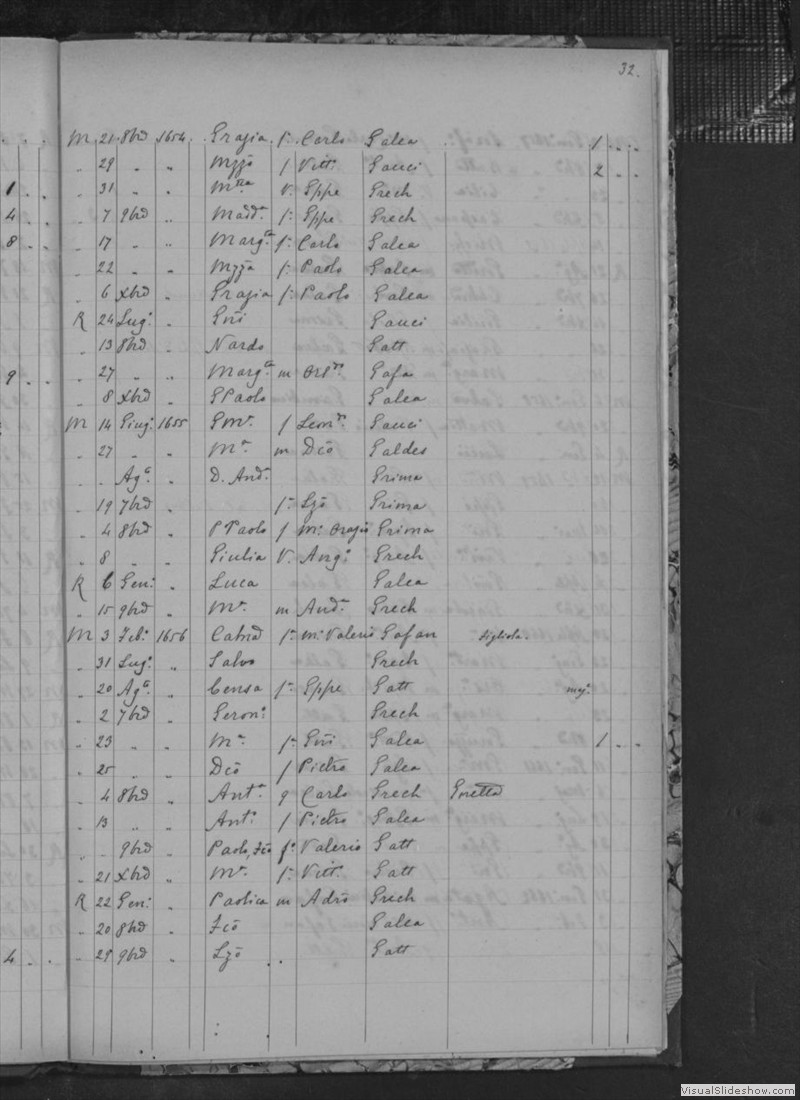 32.
M 21 8brẽ 1654 Grazia f: Carlo Galea 1
" 29 " " Mzzã f Vittº Gauci 2
1 " 31 " " Mria v. Gppe Grech
4 " 7 9brẽ " Maddª f: Gppe Grech
8 " 17 " " Margta f: Carlo Galea
" 22 " " Mzzã f: Paolo Galea
" 6 Xbrẽ " Grazia f: Paolo Galea
R 24 Lugº " Gñi Gauci
" 13 8brẽ " Nardo Gatt
9 " 27 " " Margta m Gafa
" 8 Xbrẽ " GPaolo Galea
M 14 Giugº 1655 Gmª f Leonro Gauci
" 27 " " Mª m Dcõ Galdes
" Agº " D. Andª Grima
" 19 7brẽ " f: Lzõ Grima
" 4 8brẽ " P Paolo f mº Orazio Grima
" 8 " " Giulia V. Angº Grech
R 6 Genº " Luca Galea
" 15 9brẽ " Mª m Andª Grech
M 3 Febº 1656 f: mº Valerio Gafan
" 31 Lugº " Salvo Grech
" 20 Agº " Censa f: Gppe Gatt
" 2 7brẽ " Geronº Grech
" 23 " " Mª f: Gñi Galea 1
" 25 " " Dcõ f Pietro Galea
" 4 8brẽ " Antª q Carlo Grech
" 13 " " Antº f Pietro Galea
" 9brẽ " Paolo, Fcõ fº Valerio Gatt
" 21 Xbrẽ " Mª f: Vittº Gatt
R 22 Genº " Paolica m Adrõ Grech
" 20 8brẽ " Fcõ Galea
4 " 29 9brẽ " Lzõ Gatt
VisualSlideshow.com